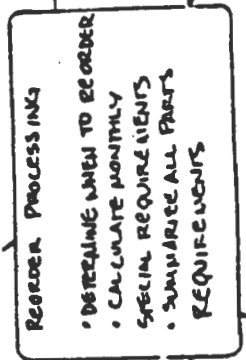 REORDER PROCESSING
• DETERMINE WHEN TO REORDER
• CALCULATE MONTHLY
SPECIAL REQUIREMENTS
• SUMMARIZE ALL PARTS
REQUIREMENTS